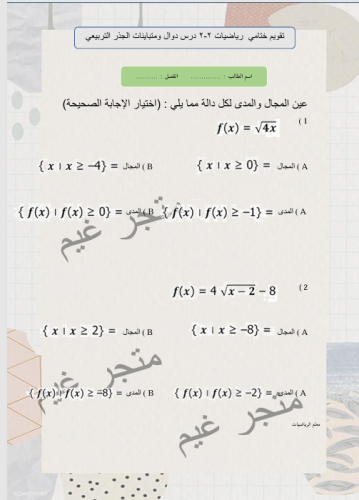 تقويم ختامي رياضيات ٢-٢ درس دوال ومتباينات الجذر التربيعي
اسم الطالب : ............. الفصل : .........
عين المجال والمدى لكل دالة مما يلي : (اختيار الإجابة الصحيحة)
( 1
f(x) = √4x
A ) المجال = { x ∣ x ≥ 0 } B ) المجال = { x ∣ x ≥ −4 }
A ) المدى = { f(x) ∣ f(x) ≥ −1 } B ) المدى = { f(x) ∣ f(x) ≥ 0 }
متجر غيم
( 2
f(x) = 4 √x − 2 − 8
A ) المجال = { x ∣ x ≥ −8 } B ) المجال = { x ∣ x ≥ 2 }
A ) المدى = { f(x) ∣ f(x) ≥ −2 } B ) المدى = { f(x) ∣ f(x) ≥ −8 }
متجر غيم
متجر غيم
معلم الرياضيات